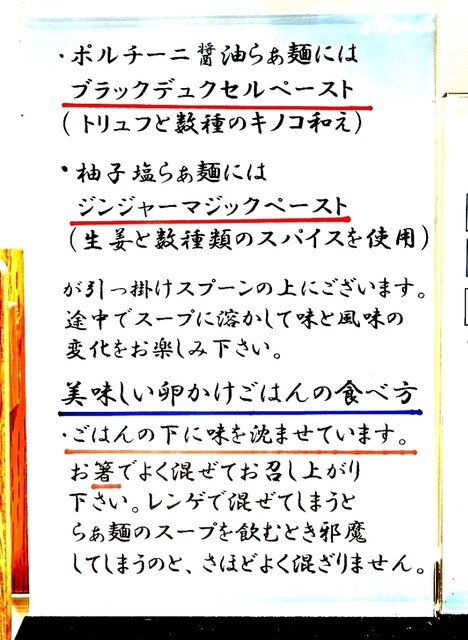 ・ポルチーニ醤油らぁ麺には
ブラックデュクセルペースト
(トリュフと数種のキノコ和え)
・柚子塩らぁ麺には
ジンジャーマジックペースト
(生姜と数種類のスパイスを使用)
が引っ掛けスプーンの上にございます。
途中でスープに溶かして味と風味の
変化をお楽しみ下さい。
美味しい卵かけごはんの食べ方
・ごはんの下に味を沈ませています。
お箸でよく混ぜてお召し上がり
下さい。レンゲで混ぜてしまうと
らぁ麺のスープを飲むとき邪魔
してしまうのと、さほどよく混ざりません。